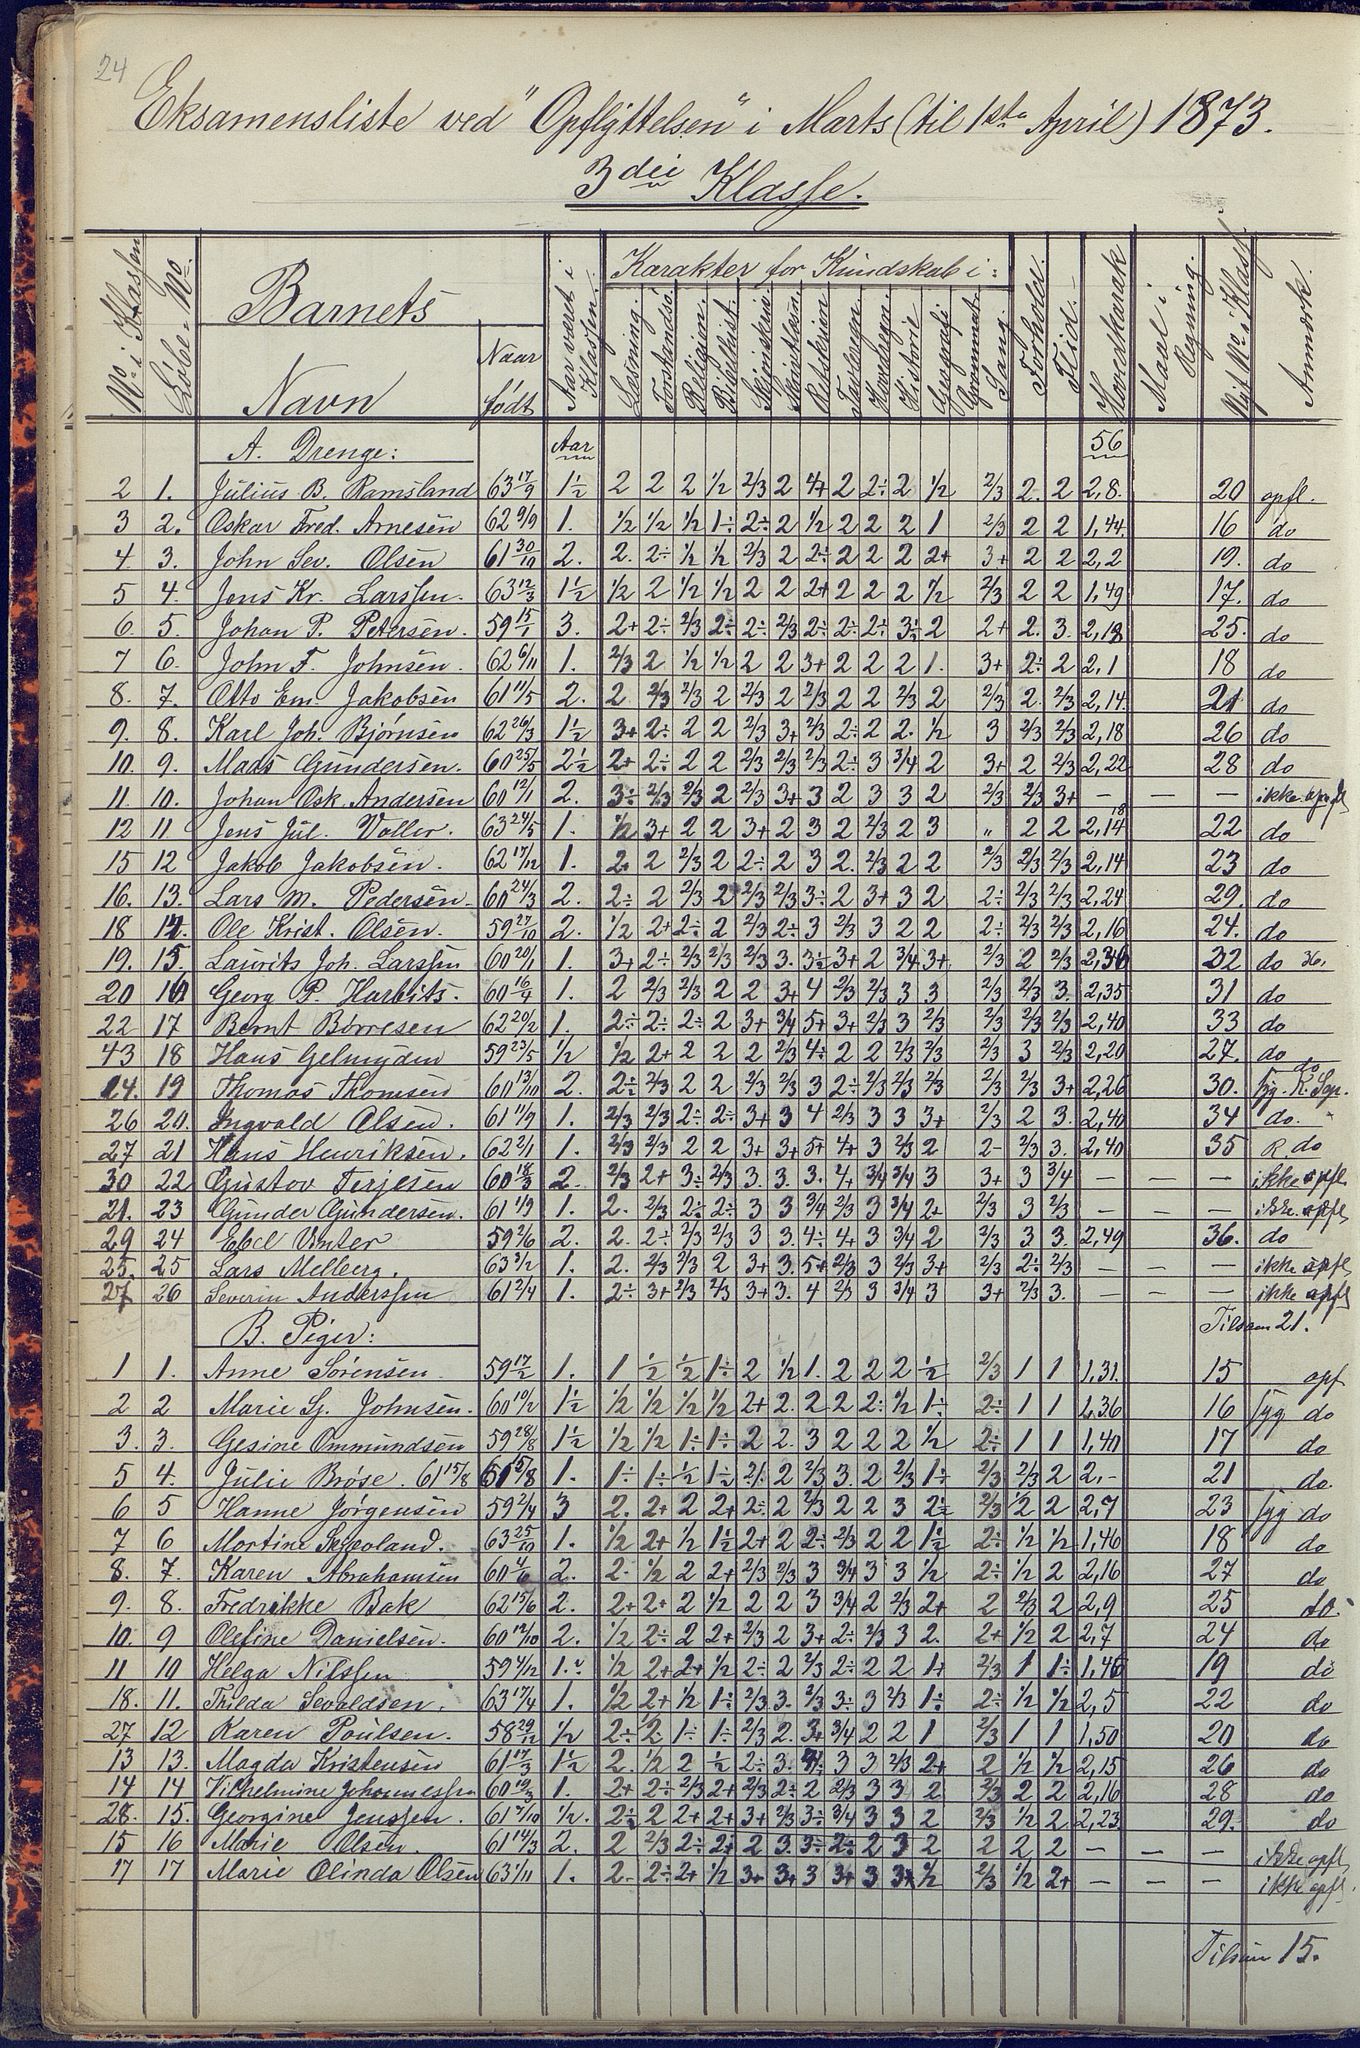 24
Eksamensliste ved "Opflyttelsen" i Marts (til 1ste April) 1873.
3die Klasse.
No i Klassen
Løbe-No.
Barnets
Navn
Naar født
Aar været i Klassen.
Karakter for Kundskab i:
Læsning.
Forstands.
Religion.
Bibelhist.
Skjønskriv.
Retskrivn
Tavleregn
Hovedregn.
Historie
Geografi
Grammat.
Sang.
Forhold.
Flid.
Hovedkarak
Maal i Regning.
Nyt No i Klass.
Anmærk.
A. Drenge: Aar 56
2 1. Julius B. Ramsland 63 17/9 1½ 2 2 2 ½ 2/3 2 4+ 2 2÷ 2 ½ 2/3 2. 2 2,8. 20 opfl.
3 2. Oskar Fred. Arnesen 62 9/9 1. ½ ½ ½ 1÷ 2÷ 2 ½ 2 2 2 1 2/3 2 2 1,44. 16 do
4. 3. John Sev. Olsen 61 30/10 2. 2. 2÷ ½ ½ 2/3 2 2÷ 2 2 2 2+ 3+ 2 2 2,2 19. do
5 4. Jens Kr. Larssen. 63 12/3 1½ ½ 2 ½ ½ 2 2 2+ 2 2 2 ½ 2/3 2 2 1,49 17. do
6. 5. Johan P. Petersen. 59 15/1 3. 2+ 2÷ 2/3 2÷ 2÷ 2/3 2÷ 2÷ 2÷ 3÷ 2 2+ 2. 3. 2,18 25. do
7 6. John F. Johnsen. 62 6/11 1. 2/3 2 ½ ½ 2 2 3+ 2 2 2 1. 3+ 2÷ 2 2,1 18 do
8. 7. Otto Em. Jakobsen 61 11/5 2. 2 2/3 2/3 2 2/3 2 2/3 2 2 2/3 2 2/3 2. 2/3 2,14. 21 do
9. 8. Karl Joh. Bjørnsen 62 26/3 1½ 3+ 2÷ 2 2 2/3 3+ 2/3 2÷ 2 2. ½ 3 2/3 2/3 2,18 26 do
10. 9. Maas Gundersen. 60 25/5 2½ 2+ 2÷ 2 2 2/3 2/3 2/3 2÷ 3 3/4 2 3+ 2 2/3 2,22 28 do
11. 10. Johan Osk. Andersen 60 12/1 2. 3÷ 2/3 2/3 2 2/3 3+ 3 2 3 3 2 2/3 2/3 3+ — — — ikke opfl
12 11 Jens Jul. Voller. 63 24/5 1. ½ 3+ 2 2 3+ 2 3 2 2/3 2 3 " 2 2 2,14 18 22 do
15 12 Jakob Jakobsen. 62 17/12 1. 2. 2 2/3 2 2÷ 2 3 2. 2/3 2 2 2/3 2/3 2/3 2,14 23 do
16. 13. Lars M. Pedersen. 60 24/3 2. 2÷ 2 2/3 2 2/3 2/3 3÷ 2 3+ 3 2 2÷ 2/3 2/3 2,24 29. do
18 14. Ole Krist. Olsen. 59 27/10 2. ½ 2+ 2÷ 2 2/3 2÷ 3 2/3 3 2 2 2÷ 2/3 2/3 2,16 24. do
19. 15. Laurits Joh. Larssen 60 20/1 1. 3+ 2÷ 2/3 2/3 2/3 3. 3÷ 3+ 2 3/4 3+ 2/3 2 2/3 2,36 32 do 36.
20 16 Georg P. Harbits. 60 16/4 1. 2 2/3 2/3 2 2 3+ 4 2/3 2/3 3 3 2/3 2/3 3. 2,35 31 do
22 17 Bernt Børresen 62 20/2 1. 2÷ 2÷ 2÷ 2 3+ 3/4 5+ 3+ 2/3 3 2/3 2/3 2/3 2/3 2,40 33 do
43 18 Hans Gelmyden 59 23/5 ½ ½ 2+ 2 2 2 2/3 4÷ 2 2 2/3 2/3 2/3 3 2/3 2,20 27. do
24. 19 Thomas Thomsen 60 13/10 2. 2÷ 2/3 2 2 2/3 2/3 3 2÷ 2/3 2/3 2/3 2/3 2/3 3+ 2,26 30. do
26 20. Ingvald Olsen. 61 11/9 1. 2/3 2/3 2÷ 2÷ 3+ 3 4 2/3 3 3 3+ 2/3 2 3. 2,40 34 do.
27 21 Hans Henriksen. 62 2/1 1. 2/3 2/3 2 2 3+ 3+ 5+ 4+ 3 2/3 2 2- 2/3 3. 2,40 35 R. do
30 22 Gustav Terjesen 60 18/3 2. 2/3 2+ 3÷ 2/3 3. 3. 3. 4+ 3/4 3/4 3 3+ 3 3/4 — — — ikke opfl
21. 23 Gunder Gundersen. 61 1/9 1. 2. 2/3 2÷ 2÷ 3 3 3/4 2/3 3 3/4 2+ 2/3 3 2/3 — — — ikke opfl
29 24 Ebel Vinter 59 2/6 2. 2. 2÷ 2/3 2/3 3 3. 4÷ 4+ 3 3/4 2 2/3 3 3. 2,49 36. do
25. 25 Lars Melberg. 63 3/2 1. 2. 2/3 2/3 2 3+ 3. 5+ 2/3 3 2/3 3+ 2/3 2÷ 2/3 — — — ikke opfl
27 26 Severin Anderssen 61 2/4 1. 2÷ 3+ 2/3 2/3 3+ 3. 4 2/3 3 3/4 3 3+ 2/3 3. — — — ikke opfl
B. Piger: Tilsam 21.
1 1. Anne Sørensen. 59 17/2 1. 1 ½ ½ 1÷ 2 ½ 1. 2 2 2 ½ 2/3 1 1 1,31. 15 opf
2 2 Marie Sj. Johnsen. 60 10/2 1½ ½ ½ ½ ½ 2+ 2. 2 2 2÷ ½ 1÷ 2÷ 1 1 1,36 16 syg do
3. 3. Gesine Ommundsen 59 28/8 1½ ½ ½ 1÷ 1÷ 2 2. 3 2 2 2 ½ 2÷ 1 1 1,40 17 do
5 4. Julie Brøse. 61 15/8 61 15/8 1. 1÷ 1÷ ½ 1÷ 2/. 2 2/3 3. 2 2/3 1÷ 2/3 2/3 2 2,- 21 do.
6 5 Hanne Jørgensen 59 2/4 3 2. 2+ 2 2+ 2÷ 2 2/3 2 2 3 2÷ 2/3 ½ 2 2,7 23 syg do
7 6 Martine Sejeoland. 63 25/10 1. ½ 2+ ½ 1½ 2+ 2 2÷ 2/3 2 2 1½ 2÷ ½ ½ 1,46 18 do
8. 7. Karen Abrahamsen 60 4/6 2. 2. ½ 2 2+ 2/3 2/3 3 3/4 3 3 ½ 2÷ ½ 2 2,16 27 do
9. 8. Fredrikke Bak 62 15/6 2. 2+ 2+ 2 ½ 2 2 3 3/4 2 2/3 2+ 2 2/3 2 2,9 25 do.
10. 9 Olefine Danielsen. 60 12/10 2. ½ 2÷ 2 2+ 2/3 2 3+ 2÷ 2/3 3 2. 2+ ½ 2 2,7 24 do
11 10 Helga Nilssen 59 4/12 1. ½ 2+ 2+ ½ 2÷ 2 2/3 2÷ 2 2 1+ 2/3 1 1÷ 1,46 19 do
18. 11. Thilda Sevaldsen. 63 17/4 1. ½ 2+ ½ 1÷ 2/3 3. 2/3 3÷ 3 2/3 1÷ 2÷ ½ ½ 2,5 22 do
27 12 Karen Poulsen. 58 29/12 ½ 2÷ ½ 1÷ 1÷ 2/3 2. 3+ 3/4 2 2 1 2/3 1 1 1,50 20 do
13 13. Magda Kristensen 61 17/3 1½ 2. ½ 2 ½ 2÷ 3. 3 3 2/3 2+ 2 ½ ½ 2,15 26 do
14 14 Vilhelmine Johannessen 60 19/3 1. 2+ 2÷ 2/3 2+ 2/3 2÷ 2 2/3 3 3 2 2/3 2 2 2,16 28 do
28. 15. Georgine Jenssen. 61 7/10 ½. 2÷ 2 2+ 2+ 3+ 2/3 3÷ 3/4 3 3 2 2/3 ½ 2 2,23 29. do
15 16 Marie Olsen. 61 14/3 2. 2 2/3 2÷ 2+ 2 3. 3÷ 2÷ 2 3 2 2 2 2 — — — ikke opfl
17 17 Marie Olinda Olsen 63 1/11 1. 2- 2÷ 2+ ½ 3+ 3+ 3 3+ 3 3+ ½ 2/3 ½ 2+ — — — ikke opfl.
Tilsam 15.